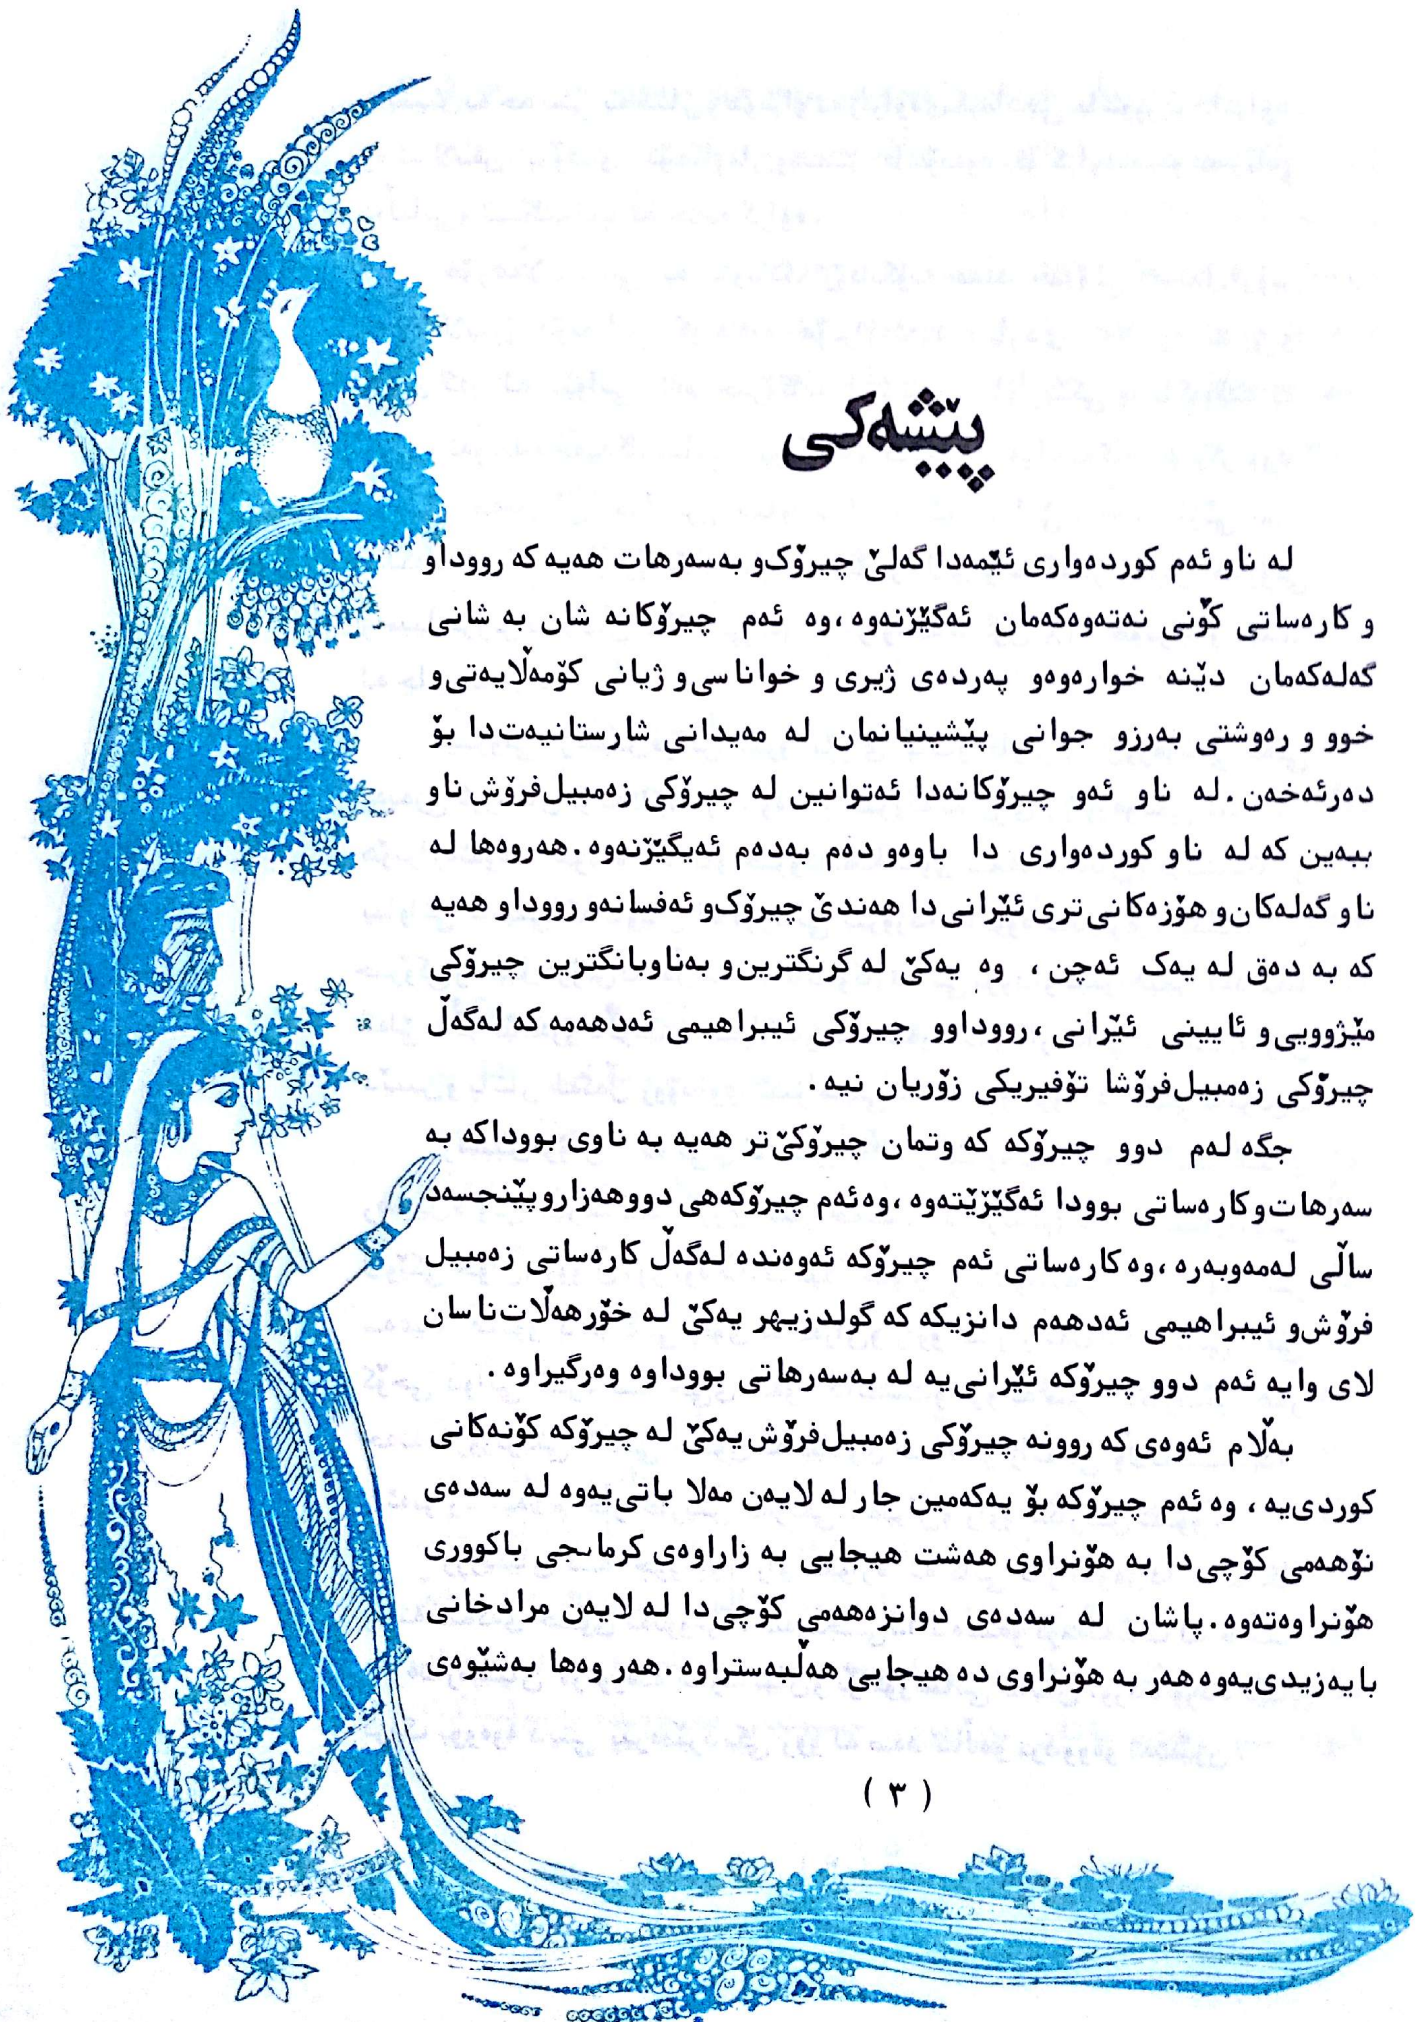 پێشەکی
لە ناو ئەم کوردەواری ئێمەدا گەلێ چیرۆک‌و بەسەرهات هەیە کە رووداو
و کارەساتی کۆنی نەتەوەکەمان ئەگێڕنەوە ،وە ئەم چیرۆکانە شان بە شانی
گەلەکەمان دێنە خوارەوەو پەردەی ژیری و خواناسی‌و ژیانی کۆمەڵایەتی‌و
خوو و رەوشتی بەرزو جوانی پێشینیانمان لە مەیدانی شارستانیەت‌دا بۆ
دەرئەخەن . لە ناو ئەو چیرۆکانەدا ئەتوانین لە چیرۆکی زەمبیل‌فرۆش ناو
ببەین کە لە ناو کوردەواری دا باوەو دەم بەدەم ئەیگێڕنەوە . هەروەها لە
ناو گەلەکان‌و هۆزەکانی‌تری ئێرانی‌دا هەندێ چیرۆک‌و ئەفسانەو رووداو هەیە
کە بە دەق لە یەک ئەچن ، وە یەکێ لە گرنگترین‌و بەناوبانگترین چیرۆکی
مێژوویی‌و ئایینی ئێرانی ، رووداوو چیرۆکی ئیبراهیمی ئەدهەمە کە لەگەڵ
چیرۆکی زەمبیل‌فرۆشا تۆفیریکی زۆریان نیە .
جگە لەم دوو چیرۆکە کە وتمان چیرۆکێ‌تر هەیە بە ناوی بووداکە بە
سەرهات‌وکارەساتی بوودا ئەگێڕێتەوە ،وەئەم چیرۆکەهی دووهەزاروپێنجسەد
ساڵی لەمەوبەرە ،وە کارەساتی ئەم چیرۆکە ئەوەندە لەگەڵ کارەساتی زەمبیل
فرۆش‌و ئیبراهیمی ئەدهەم دانزیکە کە گولدزیهر یەکێ لە خۆرهەڵات‌ناسان
لای وایە ئەم دوو چیرۆکە ئێرانی‌یە لە بەسەرهاتی بووداوە وەرگیراوە .
بەڵام ئەوەی کە روونە چیرۆکی زەمبیل‌فرۆش یەکێ لە چیرۆکە کۆنەکانی
کوردی‌یە ، وە ئەم چیرۆکە بۆ یەکەمین جار لە لایەن مەلا باتی‌یەوە لە سەدەی
نۆهەمی کۆچی‌دا بە هۆنراوی هەشت هیجایی بە زاراوەی کرمانجی باکووری
هۆنراوەتەوە . پاشان لە سەدەی دوانزەهەمی کۆچی‌دا لە لایەن مرادخانی
بایەزیدی‌یەوە هەر بە هۆنراوی دە هیجایی هەڵبەستراوە . هەر وەها بەشێوەی
( ٣ )